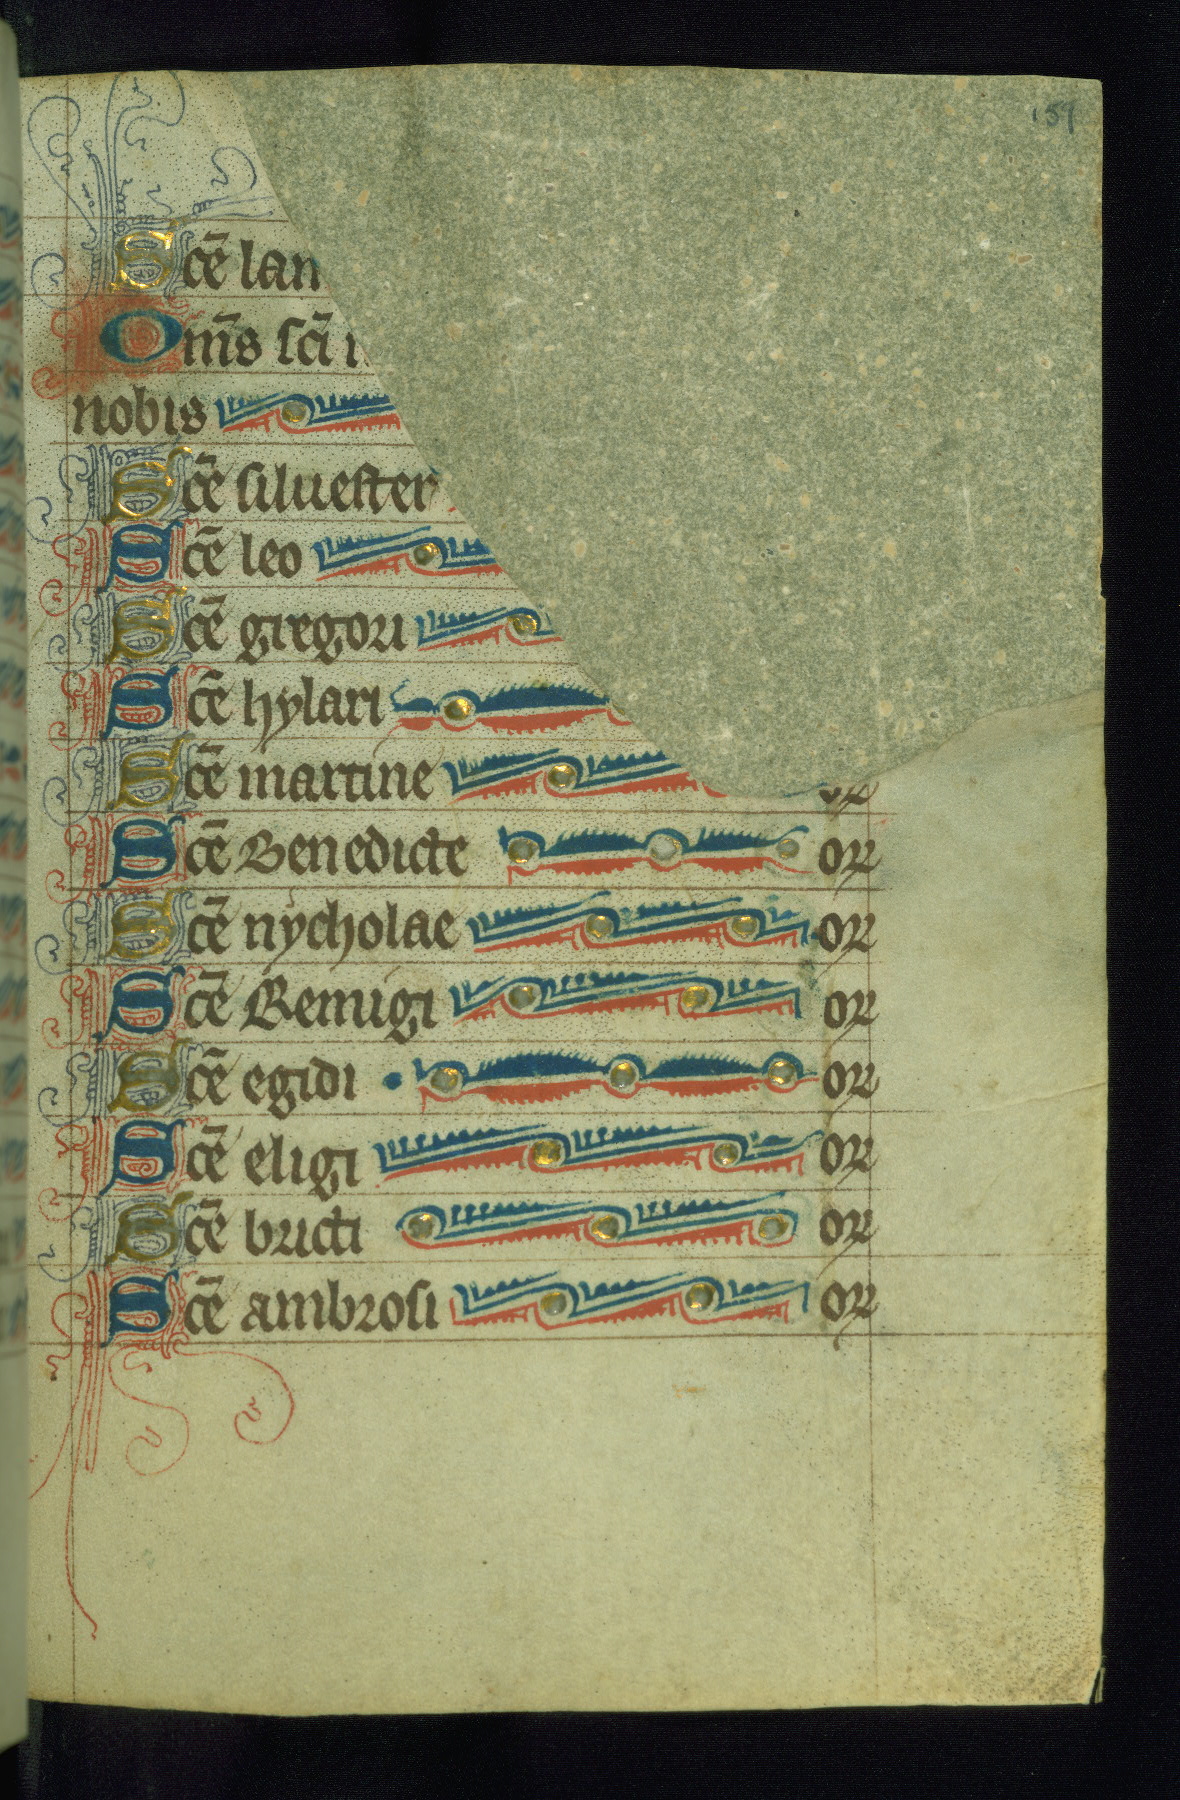 159
Sc̄e lan
Om̄s sc̄i
nobis
Sc̄e siluester
Sc̄e leo
Sc̄e gregori
Sc̄e hylari
Sc̄e martine
Sc̄e Benedicte or
Sc̄e nycholae or
Sc̄e Remigi or
Sc̄e egidi or
Sc̄e eligi or
Sc̄e bricti or
Sc̄e ambrosi or